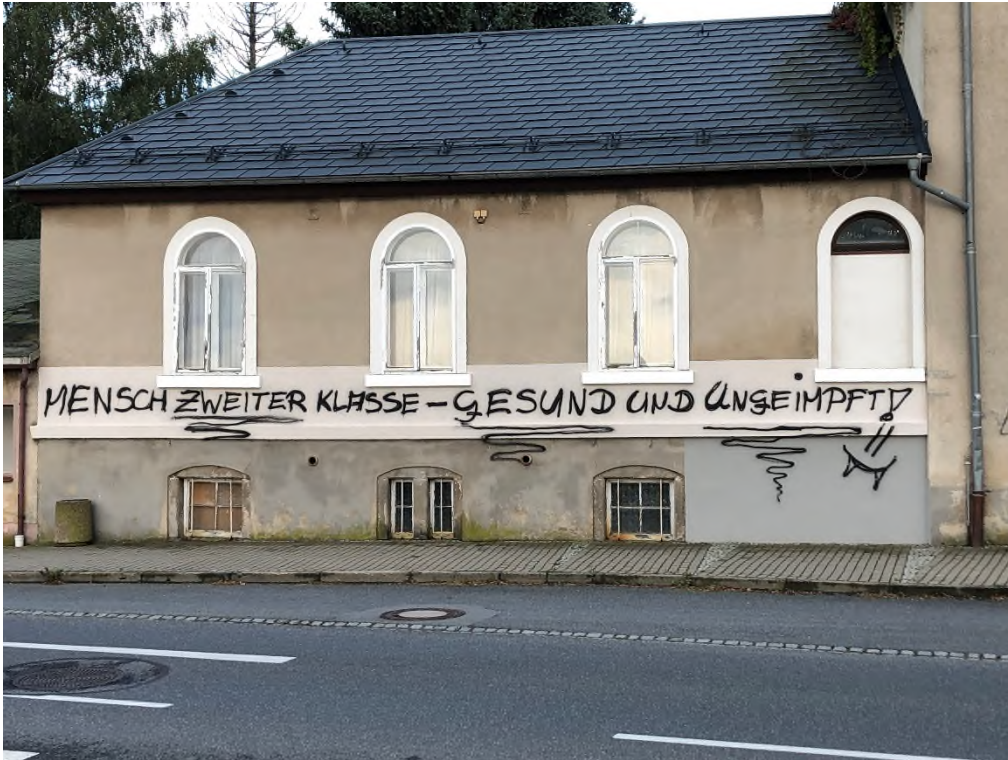 MENSCH ZWEITER KLASSE – GESUND UND UNGEIMPFT!